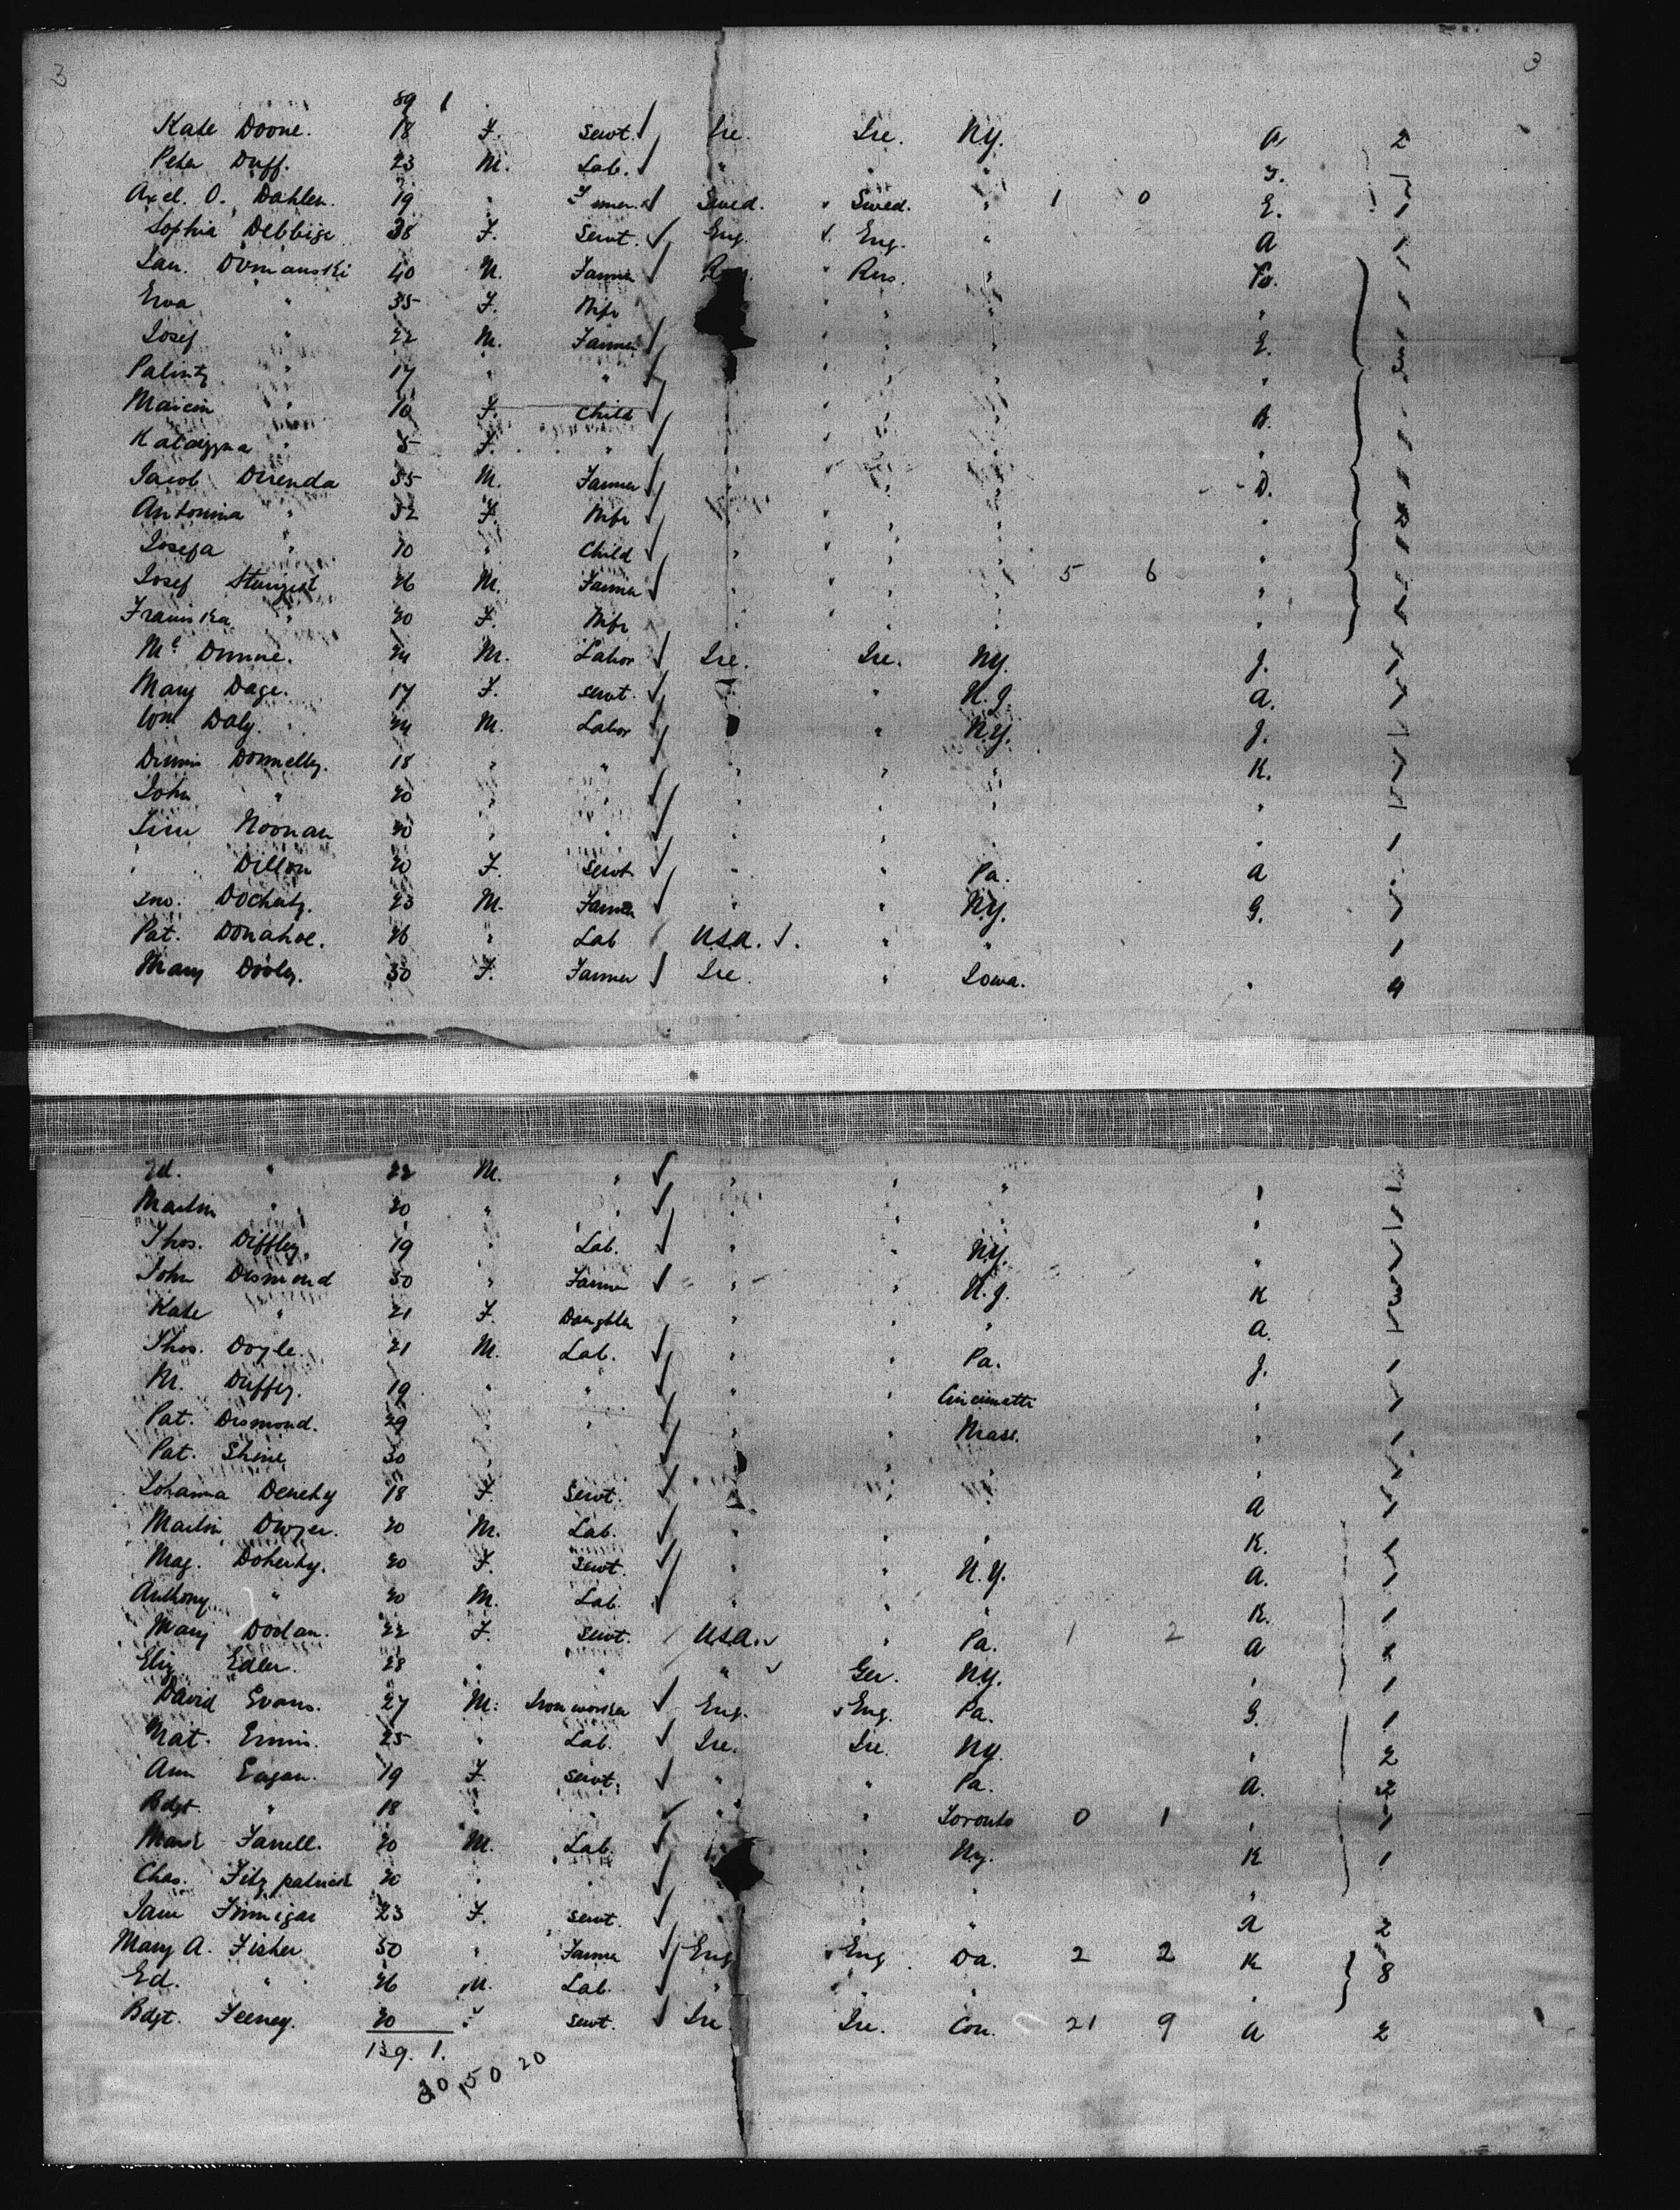 3 3
89 1
Kate Doone. 18 F. Servt. Ire. Ire. N.Y. A 2
Peter Duff. 23 M. Lab. " " "
Axel. O. Dahlen. 19 " Swed. Swed. " 1 0 E. 1
Sophia Debbige 38 F. Servt. Eng. Eng. " A 1
Jan. Domanski 40 M. Farmer Rus. " Fo. 1
Ewa " 35 F. Wife " " " 1
Josef " 22 M. Farmer " " E. 3
" 17 " " " " "
Marcin " 10 F. Child " " " B.
Katarzyna " 5 F. " " " " "
Jacob Direnda 35 M. Farmer " " " D.
Antonina " 32 F. Wife " " " "
Josefa " 10 " Child " " " "
Josef 26 M. Farmer " " " 5 6 "
" 20 F. Wife " " " "
Mc Dunne. 24 M. Labor Ire. Ire. NY. J. 1
Mary Dage. 17 F. servt. " " N.J. A. 1
Wm Daly. 24 M. Labor " N.Y. J. 1
Donnelly. 18 " " " " " K.
John " 20 " " " " " "
Noonan 20 " " " " " " 1
" Dillon 20 F. Servt " " Pa. A
Jno. Docherty. 23 M. Farmer " " N.Y. G. 1
Pat. Donahoe. 26 " Lab U.S.A. " " 1
Mary Dooley. 30 F. Farmer Ire. " Iowa. " 4
Ed. " 22 M. " " " " "
Martin " 20 " " " " "
Thos. Diffley. 19 " Lab. " " N.Y. "
John Desmond 50 " Farmer " " N.J. K 3
Kate " 21 F. Daughter " " " A.
Thos. Doyle. 21 M. Lab. " " Pa. J. 1
M. Duffey. 19 " " " " Cincinnatti " 1
Pat. Desmond. 29 " " " " Mass. " 1
Pat. Shine 30 " " " "
Johanna Denehy 18 F. Servt. " " A 1
Martin Dwyer. 20 M. Lab. " " " K.
Mag. Doherty. 20 F. Servt. " " N.Y. A. 1
Anthony " 20 M. Lab. " " " K. 1
Mary Doolan. 22 F. Servt. U.S.A. " Pa. 1 2 A
Eliz Edler. 28 " " " Ger. N.Y. " 1
David Evans. 27 M. Iron worker Eng. Eng. Pa. G. 1
Mat. 25 " Lab. Ire. Ire. NY. " 2
Ann Eagan. 19 F. Servt. " " Pa. A. 2
Bdgt. " 18 " " " " Toronto 0 1 " 1
Mark Farrell. 20 M. Lab. " Ny. K 1
Chas. Fitzpatrick 20 " " " " "
Jane Finnigan 23 F. Servt. " " A 2
Mary A. Fisher 50 " Farmer Eng Eng. 2 2 K 8
Ed. " 26 M. Lab. " " " "
Bdgt. Feeney. 20 F Servt. Ire. Ire. Con. 21 9 A 2
139. 1.
30 150 20